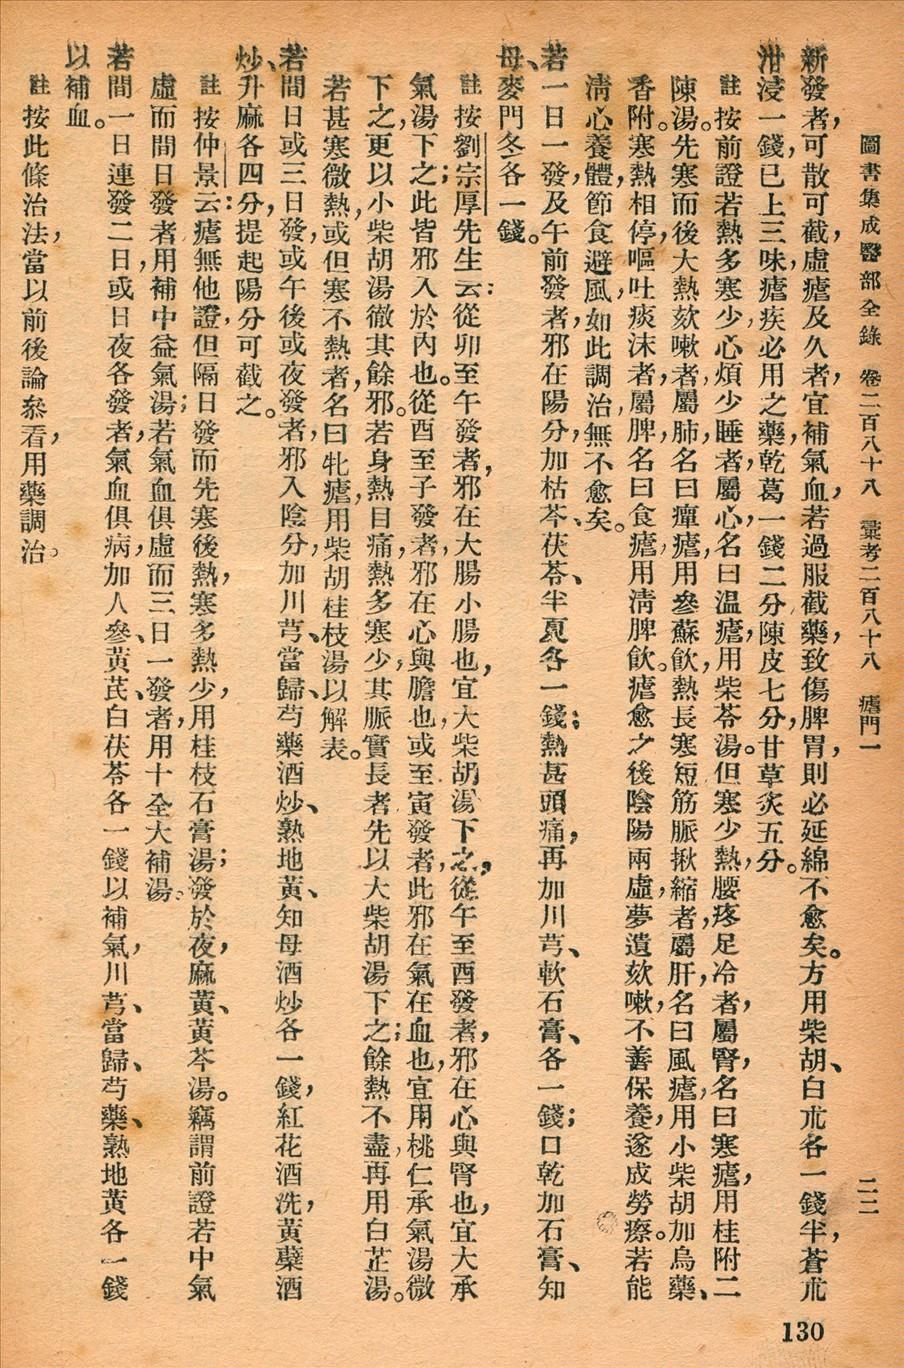 圖書集成醫部全錄　卷二百八十八　彙考二百八十八　瘧門一　二二
新發者,可散可截,虛瘧及久者,宜補氣血,若過服截藥,致傷脾胃,則必延綿不愈矣。方用柴胡、白朮各一錢半,蒼朮
泔浸一錢,已上三味,瘧疾必用之藥,乾葛一錢二分,陳皮七分,甘草炙五分。
註　按前證若熱多寒少,心煩少睡者,屬心,名曰溫瘧,用柴苓湯。但寒少熱,腰疼足冷者,屬腎,名曰寒瘧,用桂附二
陳湯。先寒而後大熱欬嗽者,屬肺,名曰癉瘧,用參蘇飲,熱長寒短,筋脈揪縮者,屬肝,名曰風瘧,用小柴胡加烏藥、
香附。寒熱相停,嘔吐痰沫者,屬脾,名曰食瘧,用清脾飲。瘧愈之後,陰陽兩虛,夢遺欬嗽,不善保養,遂成勞瘵。若能
清心養體,節食避風,如此調治,無不愈矣。
若一日一發,及午前發者,邪在陽分,加枯芩、茯苓、半夏各一錢;熱甚頭痛,再加川芎、軟石膏、各一錢;口乾加石膏、知
母、麥門冬各一錢。
註　按劉宗厚先生云:從卯至午發者,邪在大腸小腸也,宜大柴胡湯下之,從午至酉發者,邪在心與腎也,宜大承
氣湯下之;此皆邪入於內也。從酉至子發者,邪在心與膽也,或至寅發者,此邪在氣在血也,宜用桃仁承氣湯微
下之,更以小柴胡湯徹其餘邪。若身熱目痛,熱多寒少,其脈實長者,先以大柴胡湯下之;餘熱不盡,再用白芷湯。
若甚寒微熱,或但寒不熱者,名曰牝瘧,用柴胡桂枝湯以解表。
若間日或三日發,或午後或夜發者,邪入陰分,加川芎、當歸、芍藥酒炒、熟地黃、知母酒炒各一錢,紅花酒洗,黃蘗酒
炒、升麻各四分,提起陽分,可截之。
註　按仲景云:瘧無他證,但隔日發而先寒後熱,寒多熱少,用桂枝石膏湯;發於夜,麻黃、黃芩湯。竊謂前證若中氣
虛而間日發者,用補中益氣湯;若氣血俱虛而三日一發者,用十全大補湯。
若間一日連發二日,或日夜各發者,氣血俱病,加人參、黃芪、白茯苓各一錢以補氣,川芎、當歸、芍藥、熟地黃各一錢
以補血。
註　按此條治法,當以前後論叅看,用藥調治。
130